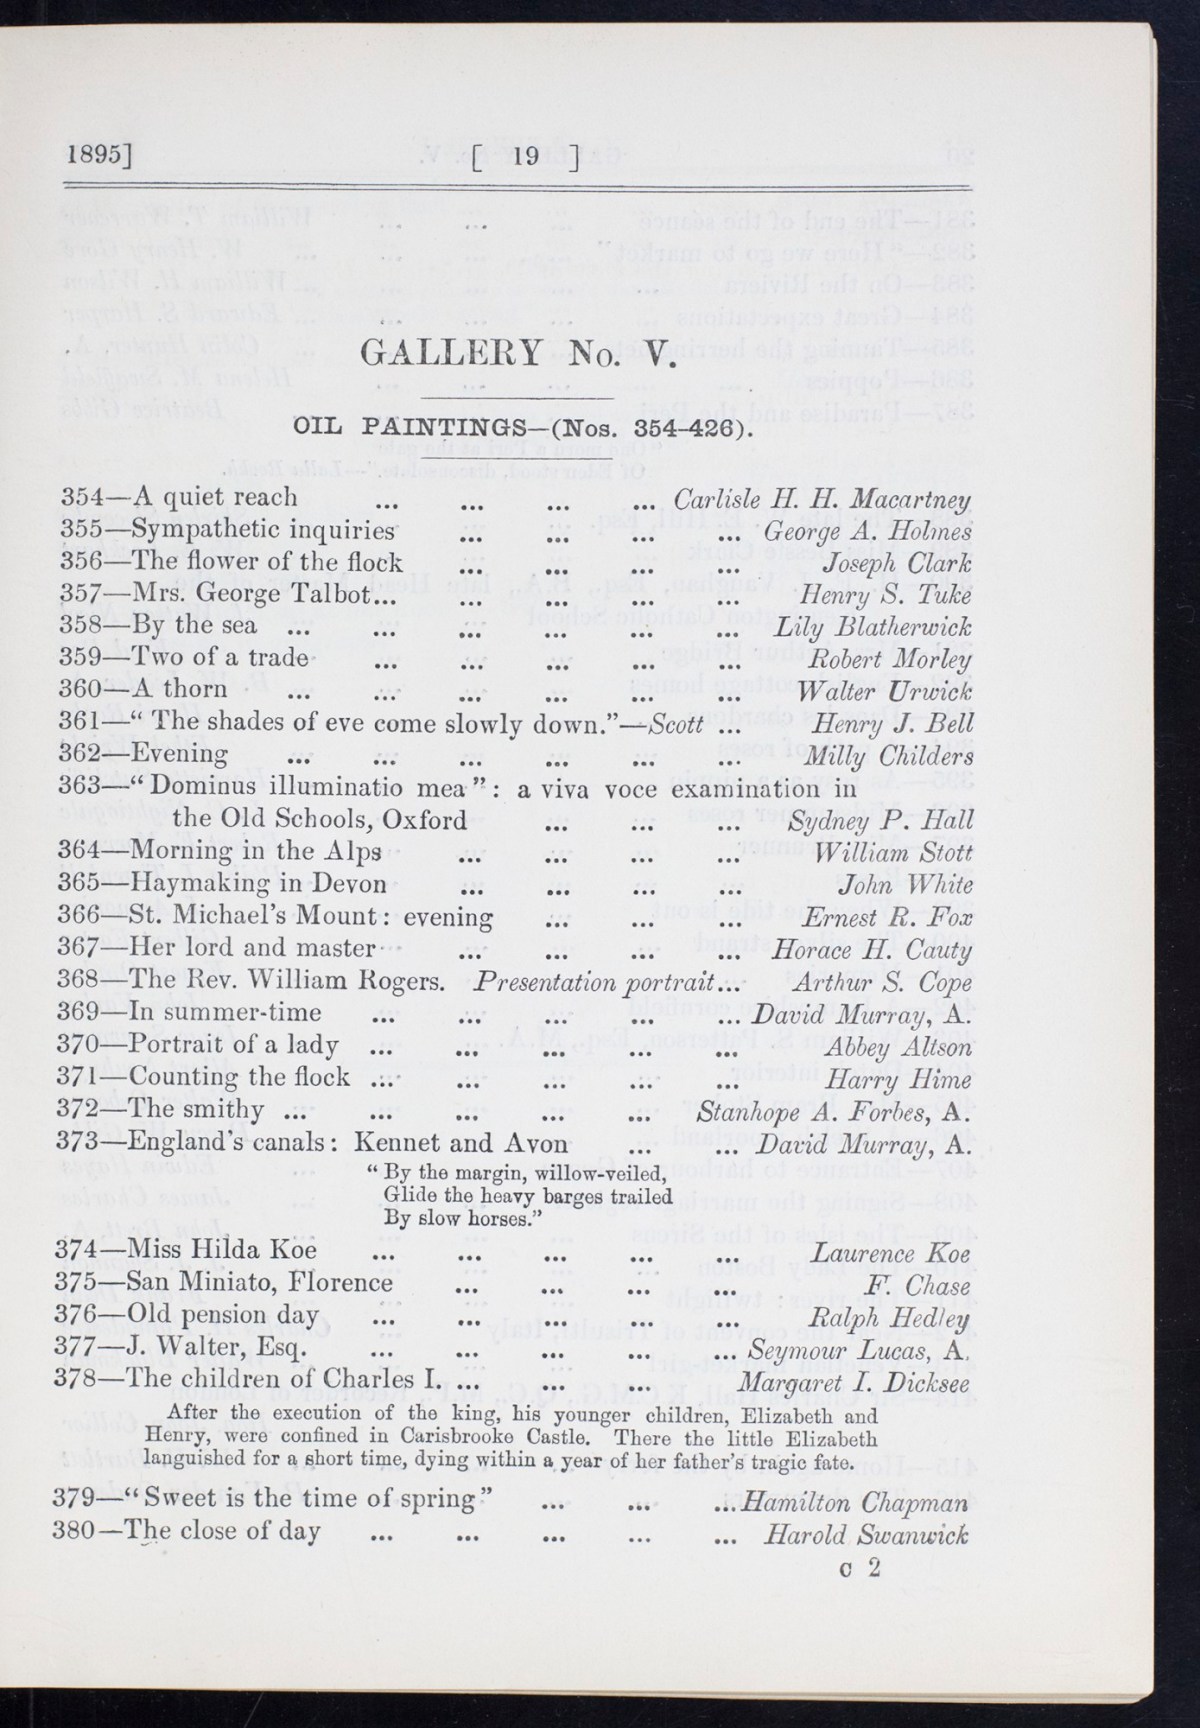 1895] [ 19 ]
GALLERY No. V.
OIL PAINTINGS—(Nos. 354-426).
354—A quiet reach ... ... ... ... Carlisle H. H. Macartney
355—Sympathetic inquiries ... ... ... ... George A. Holmes
356—The flower of the flock ... ... ... ... Joseph Clark
357—Mrs. George Talbot... ... ... ... ... Henry S. Tuke
358—By the sea ... ... ... ... ... ... Lily Blatherwick
359—Two of a trade ... ... ... ... ... Robert Morley
360—A thorn ... ... ... ... ... ... Walter Urwick
361—“ The shades of eve come slowly down.”—Scott ... Henry J. Bell
362—Evening ... ... ... ... ... ... Milly Childers
363—“ Dominus illuminatio mea ” : a viva voce examination in
the Old Schools, Oxford ... ... ... Sydney P. Hall
364—Morning in the Alps ... ... ... ... William Stott
365—Haymaking in Devon ... ... ... ... John White
366—St. Michael’s Mount : evening ... ... ... Ernest R. Fox
367—Her lord and master ... ... ... ... ... Horace H. Cauty
368—The Rev. William Rogers. Presentation portrait... Arthur S. Cope
369—In summer-time ... ... ... ... ... David Murray, A.
370—Portrait of a lady ... ... ... ... ... Abbey Altson
371—Counting the flock ... ... ... ... ... Harry Hime
372—The smithy ... ... ... ... ... Stanhope A. Forbes, A.
373—England’s canals : Kennet and Avon ... ... David Murray, A.
“ By the margin, willow-veiled,
Glide the heavy barges trailed
By slow horses.”
374—Miss Hilda Koe ... ... ... ... ... Laurence Koe
375—San Miniato, Florence ... ... ... ... F. Chase
376—Old pension day ... ... ... ... ... Ralph Hedley
377—J. Walter, Esq. ... ... ... ... ... Seymour Lucas, A.
378—The children of Charles I. ... ... ... Margaret I. Dicksee
After the execution of the king, his younger children, Elizabeth and
Henry, were confined in Carisbrooke Castle. There the little Elizabeth
languished for a short time, dying within a year of her father’s tragic fate.
379—“ Sweet is the time of spring ” ... ... ... Hamilton Chapman
380—The close of day ... ... ... ... ... Harold Swanwick
C 2